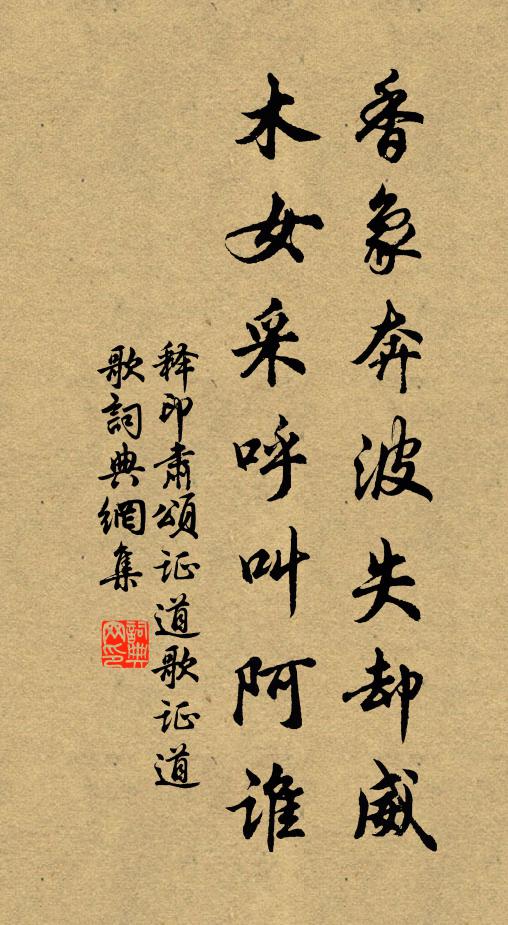 香象奔波失却威
木女采呼叫阿谁
释印肃颂证道歌证道
歌詞典網集
詞典网印